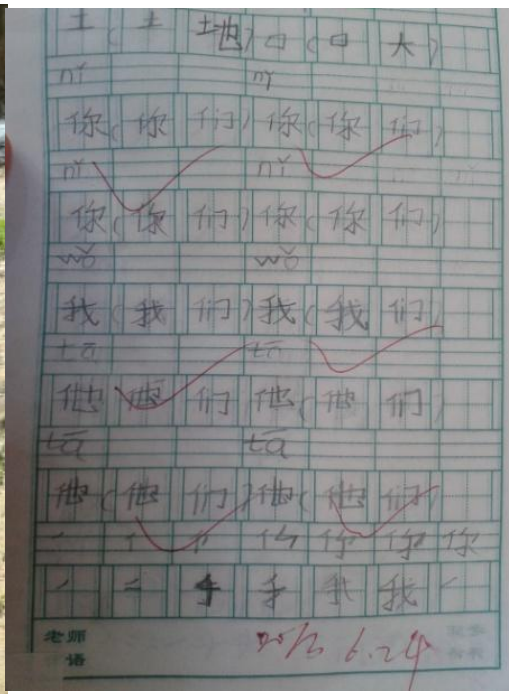 土(土地)口(口大)
nǐ nǐ
你(你们)你(你们)
nǐ nǐ
你(你们)你(你们)
wǒ wǒ
我(我们)我(我们)
tā tā
他(他们 他(他们)
tā tā
他(他们)他(他们)
你 你 你
我 我
老师
语
6.24